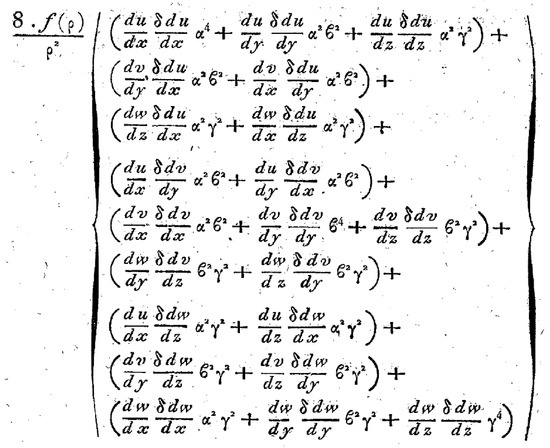 8.f(ρ)/ρ² { (du/dx δdu/dx α⁴ + du/dy δdu/dy α²ϐ² + du/dz δdu/dz α²γ²) +
(dv/dy δdu/dx α²ϐ² + dv/dx δdu/dy α²ϐ²) +
(dw/dz δdu/dx α²γ² + dw/dx δdu/dz α²γ²) +
(du/dx δdv/dy α²ϐ² + du/dy δdv/dx α²ϐ²) +
(dv/dx δdv/dx α²ϐ² + dv/dy δdv/dy ϐ⁴ + dv/dz δdv/dz ϐ²γ²) +
(dw/dy δdv/dz ϐ²γ² + dw/dz δdv/dy ϐ²γ²) +
(du/dx δdw/dz α²γ² + du/dz δdw/dx α²γ²) +
(dv/dy δdw/dz ϐ²γ² + dv/dz δdw/dy ϐ²γ²) +
(dw/dx δdw/dx α²γ² + dw/dy δdw/dy ϐ²γ² + dw/dz δdw/dz γ⁴) }